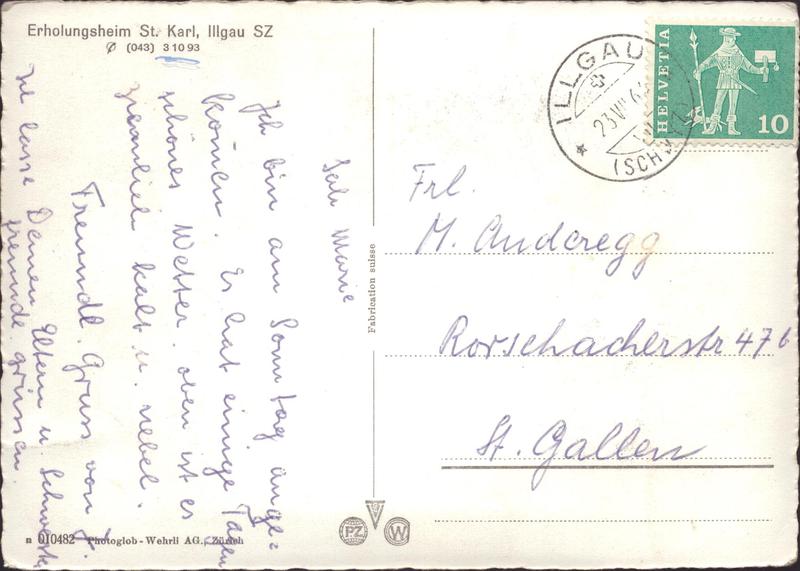 Erholungsheim St. Karl, Illgau SZ
(043) 3 10 93
Marie
Ich bin am Sonntag ange=
kommen. Es hat einige Tagen
schönes Wetter. oben ist es
ziemlich kalt u. nebel.
Freundl. Gruss von J.
Ich lasse Deinen Eltern u. Schwester
freundl. grüssen.
Fabrication suisse
n 010482 Photoglob-Wehrli AG., Zürich
PZ W
ILLGAU
23.VII
(SCHWYZ)
HELVETIA
10
Frl.
M. Anderegg
Rorschacherstr 476
St. Gallen